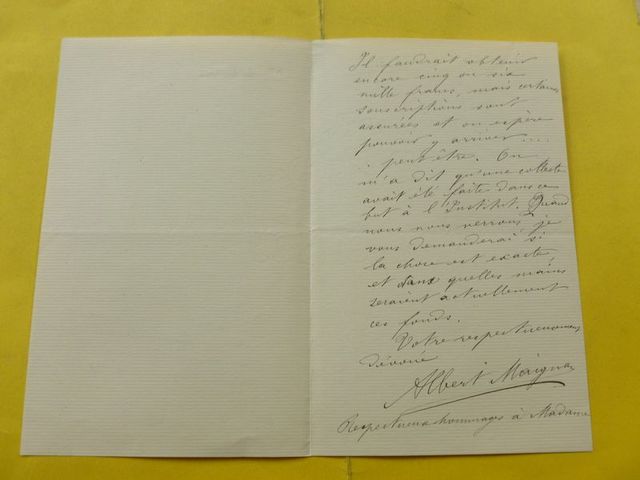 Il faudrait obtenir
encore cinq ou six
mille francs, mais certaines
souscriptions sont
assurées et on espère
pouvoir y arriver ...
... peut être. On
m'a dit qu'une collecte
avait été faite dans ce
but à l'Institut. Quand
nous nous verrons je
vous demanderai si
la chose est exacte
et dans quelles mains
seraient actuellement
ces fonds.
Votre respectueusement
dévoué
Albert Maignan
Respectueux hommages à Madame